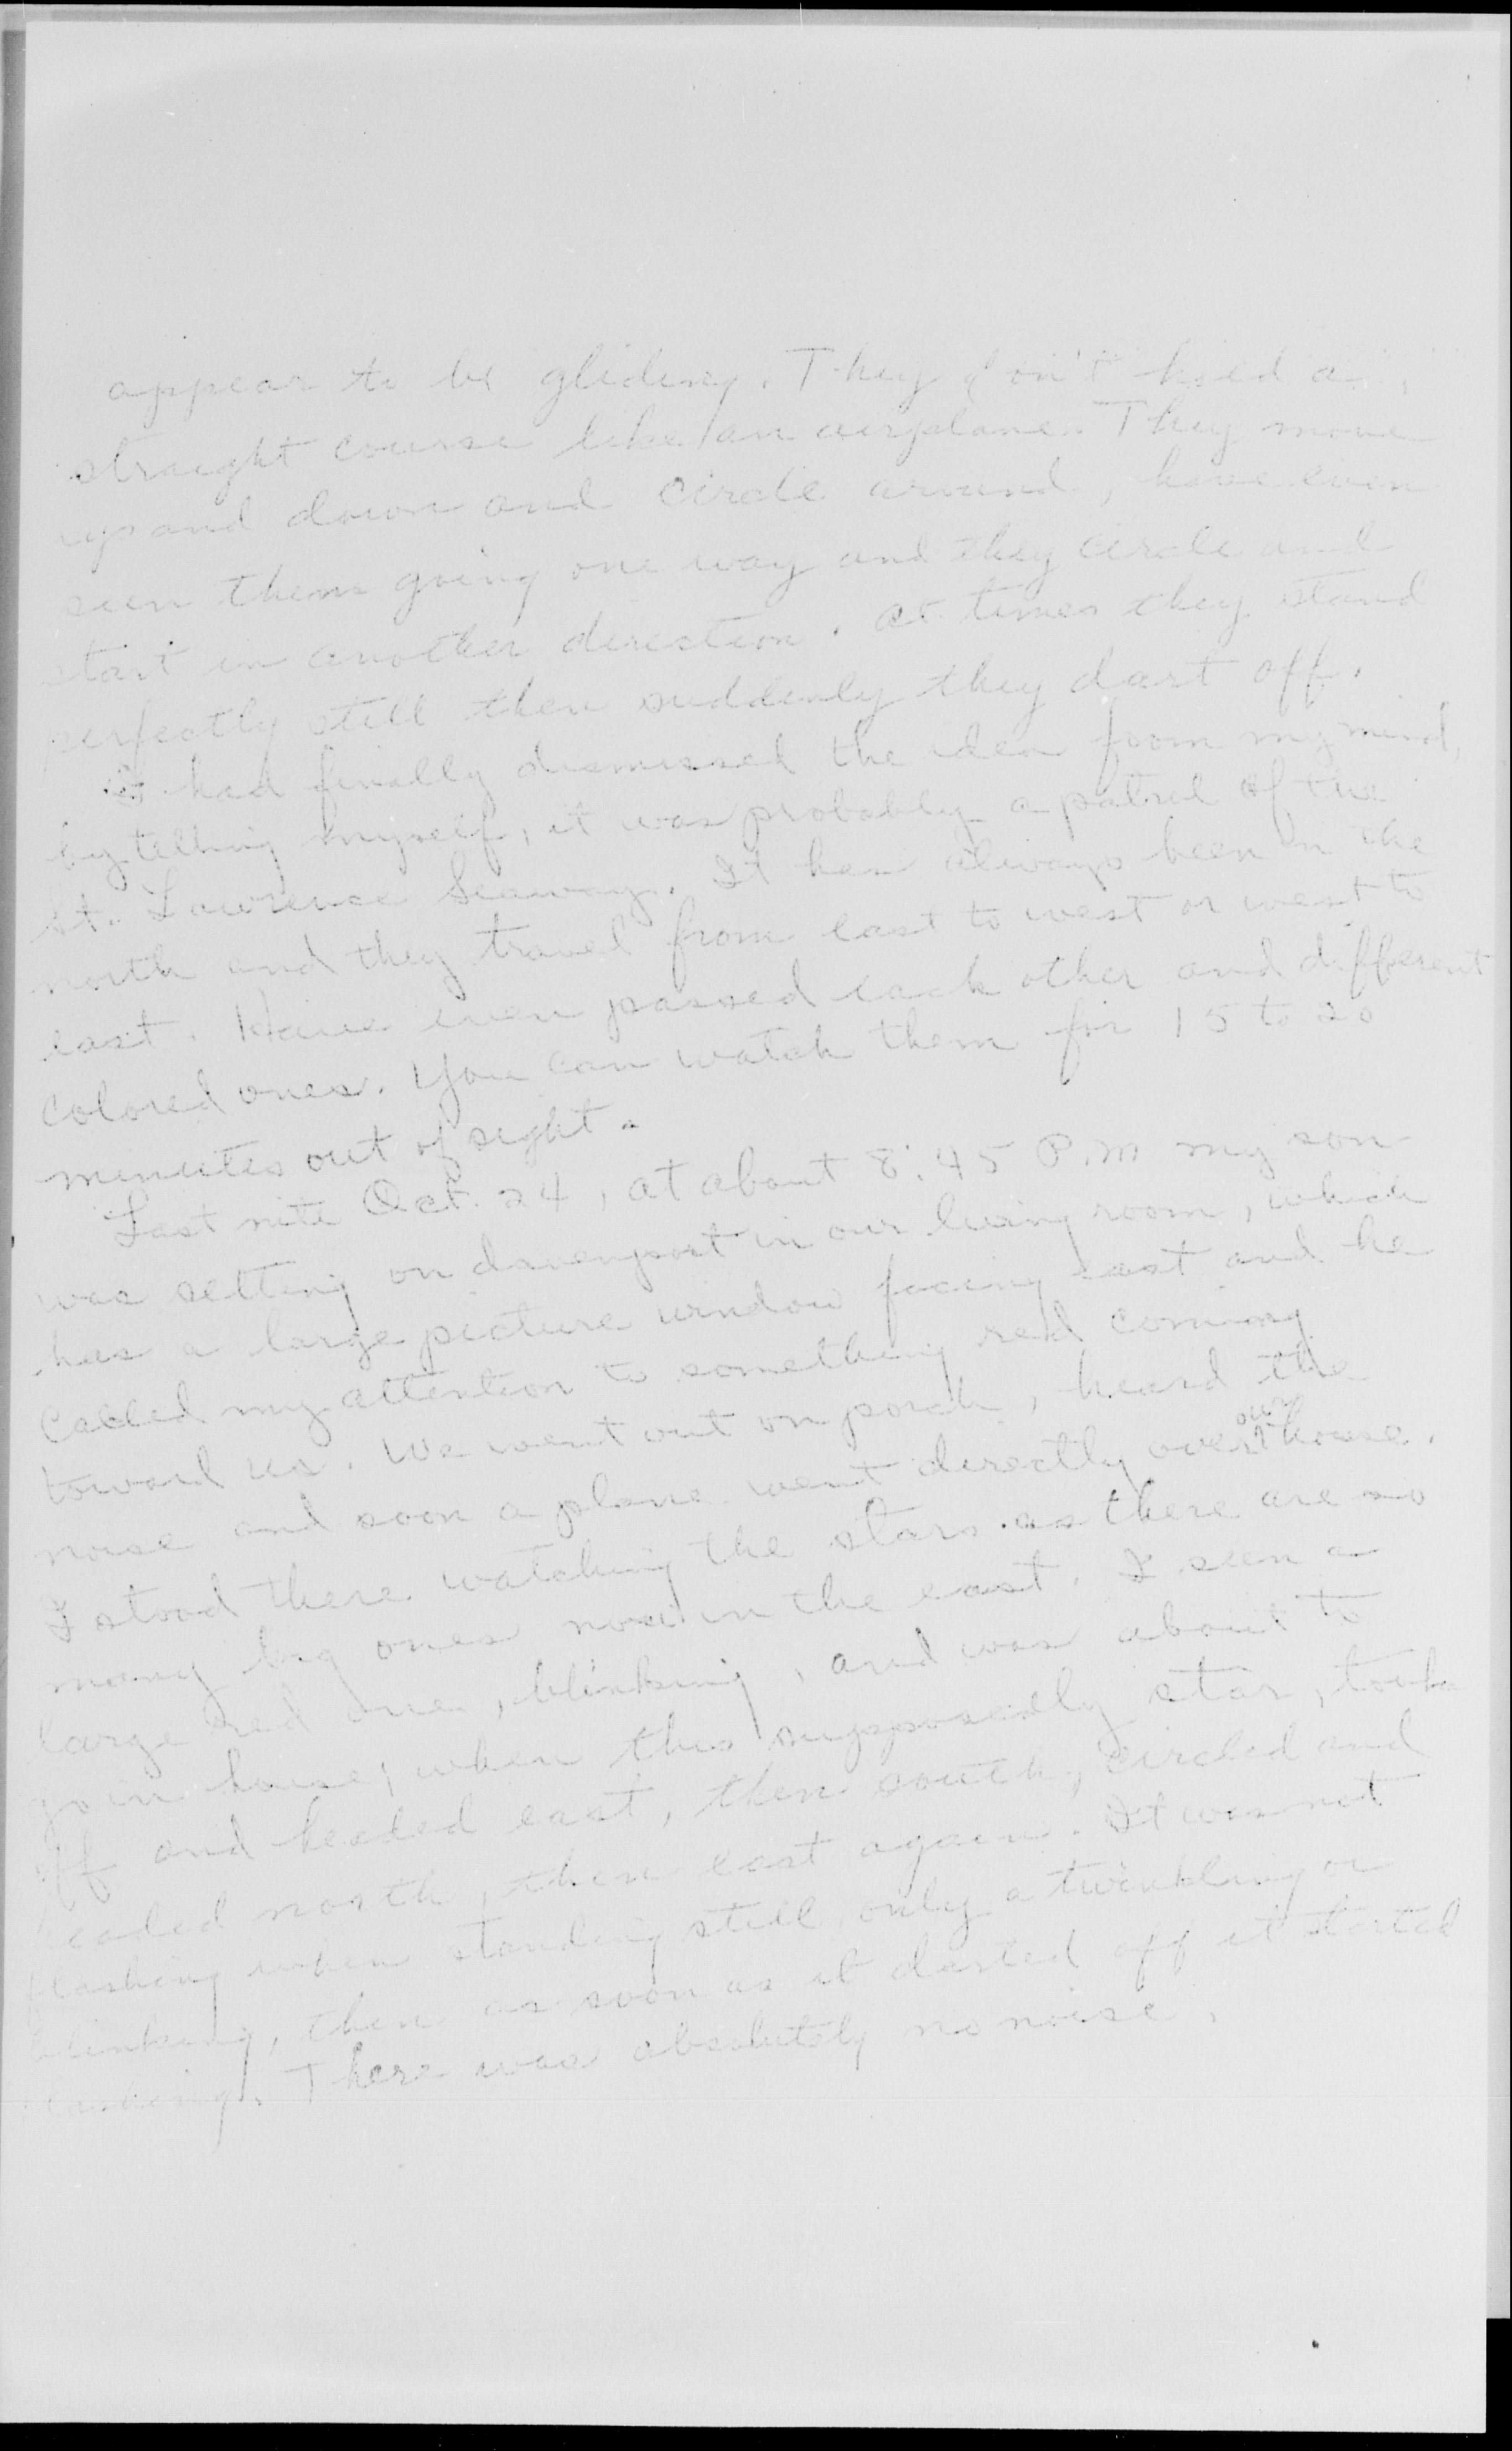 appear to be gliding. They don't hold a
straight course like an airplane. They move
up and down and circle around, have even
seen them going one way and they circle and
start in another direction. At times they stand
perfectly still then suddenly they dart off.
I had finally dismissed the idea from my mind,
by telling myself, it was probably a patrol of the
St. Lawrence Seaway. It has always been in the
north and they travel from east to west or west to
east. Have even passed each other and different
colored ones. You can watch them for 15 to 20
minutes out of sight.
Last nite Oct. 24, at about 8:45 P.M my son
was setting on davenport in our living room, which
has a large picture window facing east and he
called my attention to something red coming
toward us. We went out on porch, heard the
noise and soon a plane went directly over our house.
I stood there watching the stars as there are so
many big ones now in the east. I seen a
large red one, blinking, and was about to
go in house, when this supposedly star, took
off and headed east, then south, circled and
headed north, then east again. It was not
flashing when standing still, only a twinkling or
blinking, then as soon as it darted off it started
flashing. There was absolutely no noise.